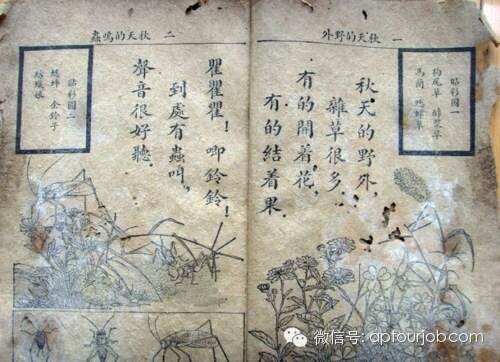 一 秋天的野外
貼彩圖一
狗尾草 酢漿草
馬蘭 蟋蟀草
秋天的野外，
雜草很多，
有的開着花，
有的結着果．
二 秋天的鳴蟲
瞿瞿瞿！唧鈴鈴！
到處有蟲叫，
聲音很好聽．
貼彩圖二
蟋蟀 金鈴子
紡織娘
微信号: apfourjob.com